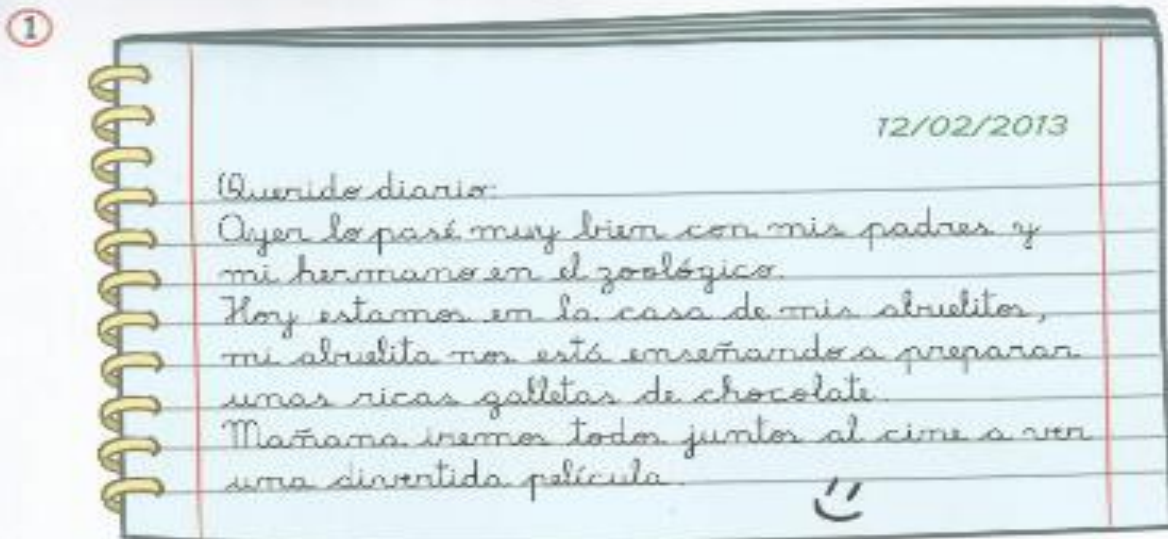 1
12/02/2013
Querido diario:
Ayer lo pasé muy bien con mis padres y
mi hermano en el zoológico.
Hoy estamos en la casa de mis abuelitos,
mi abuelita nos está enseñando a preparar
unas ricas galletas de chocolate.
Mañana iremos todos juntos al cine a ver
una divertida película.